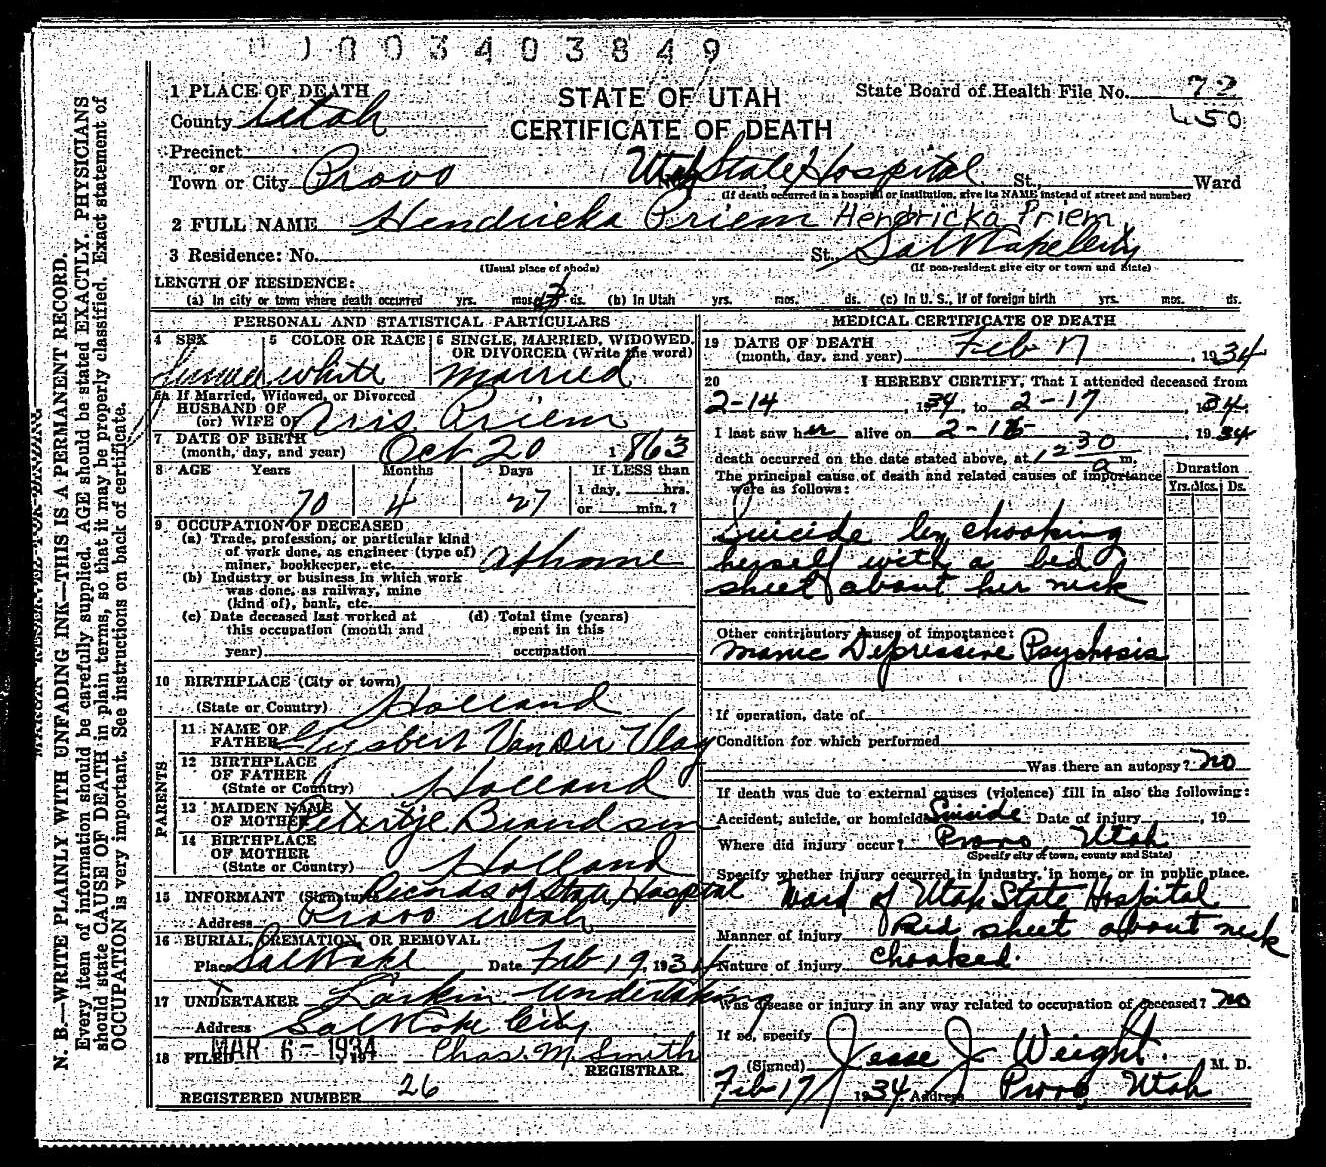 0003403849
1 PLACE OF DEATH
STATE OF UTAH
State Board of Health File No. 72
County Utah
CERTIFICATE OF DEATH
450
Precinct
or
Town or City Provo No. Utah State Hospital St., Ward
(If death occurred in a hospital or institution, give its NAME instead of street and number)
2 FULL NAME Hendricka Priem Hendricka Priem
3 Residence: No. St., Salt Lake City
(Usual place of abode) (If non-resident give city or town and State)
LENGTH OF RESIDENCE:
(a) In city or town where death occurred yrs. mos. 3 ds. (b) In Utah yrs. mos. ds. (c) In U. S., if of foreign birth yrs. mos. ds.
PERSONAL AND STATISTICAL PARTICULARS
4 SEX 5 COLOR OR RACE 6 SINGLE, MARRIED, WIDOWED,
OR DIVORCED (Write the word)
white married
5a If Married, Widowed, or Divorced
HUSBAND OF
(or) WIFE OF Aris Priem
7 DATE OF BIRTH
(month, day, and year) Oct 20 1863
8 AGE Years Months Days If LESS than
1 day, hrs.
or min.?
70 4 27
9 OCCUPATION OF DECEASED
(a) Trade, profession, or particular kind
of work done, as engineer (type of)
miner, bookkeeper, etc. at home
(b) Industry or business in which work
was done, as railway, mine
(kind of), bank, etc.
(c) Date deceased last worked at (d) Total time (years)
this occupation (month and spent in this
year) occupation
10 BIRTHPLACE (City or town)
(State or Country) Holland
PARENTS
11 NAME OF
FATHER Gysbert Van Der Vlag
12 BIRTHPLACE
OF FATHER
(State or Country) Holland
13 MAIDEN NAME
OF MOTHER Petertje Brandsen
14 BIRTHPLACE
OF MOTHER
(State or Country) Holland
15 INFORMANT (Signature) Records of State Hospital
Address Provo Utah
16 BURIAL, CREMATION, OR REMOVAL
Place Salt Lake Date Feb 19, 1934
17 UNDERTAKER Larkin Undertaking
Address Salt Lake City
18 FILED MAR 6 - 1934 19 Chas. M Smith
REGISTRAR.
REGISTERED NUMBER 26
MEDICAL CERTIFICATE OF DEATH
19 DATE OF DEATH
(month, day, and year) Feb 17, 1934
20 I HEREBY CERTIFY, That I attended deceased from
2-14, 1934, to 2-17, 1934.
I last saw her alive on 2-16, 1934
death occurred on the date stated above, at 12 30 a m.
The principal cause of death and related causes of importance
were as follows:
Duration
Yrs. Mos. Ds.
Suicide by chooking
herself with a bed
sheet about her neck
Other contributory causes of importance:
Manic Depressive Psychosis
If operation, date of
Condition for which performed
Was there an autopsy? no
If death was due to external causes (violence) fill in also the following:
Accident, suicide, or homicide Suicide Date of injury, 19
Where did injury occur? Provo, Utah
(Specify city or town, county and State)
Specify whether injury occurred in industry, in home, or in public place.
Ward of Utah State Hospital
Manner of injury Bed sheet about neck
Nature of injury chooked.
Was disease or injury in any way related to occupation of deceased? no
If so, specify
(Signed) Jesse J Weight. M. D.
Feb 17 1934 Address Provo, Utah
MARGIN RESERVED FOR BINDING
N. B.—WRITE PLAINLY WITH UNFADING INK—THIS IS A PERMANENT RECORD.
Every item of information should be carefully supplied. AGE should be stated EXACTLY. PHYSICIANS
should state CAUSE OF DEATH in plain terms, so that it may be properly classified. Exact statement of
OCCUPATION is very important. See instructions on back of certificate.